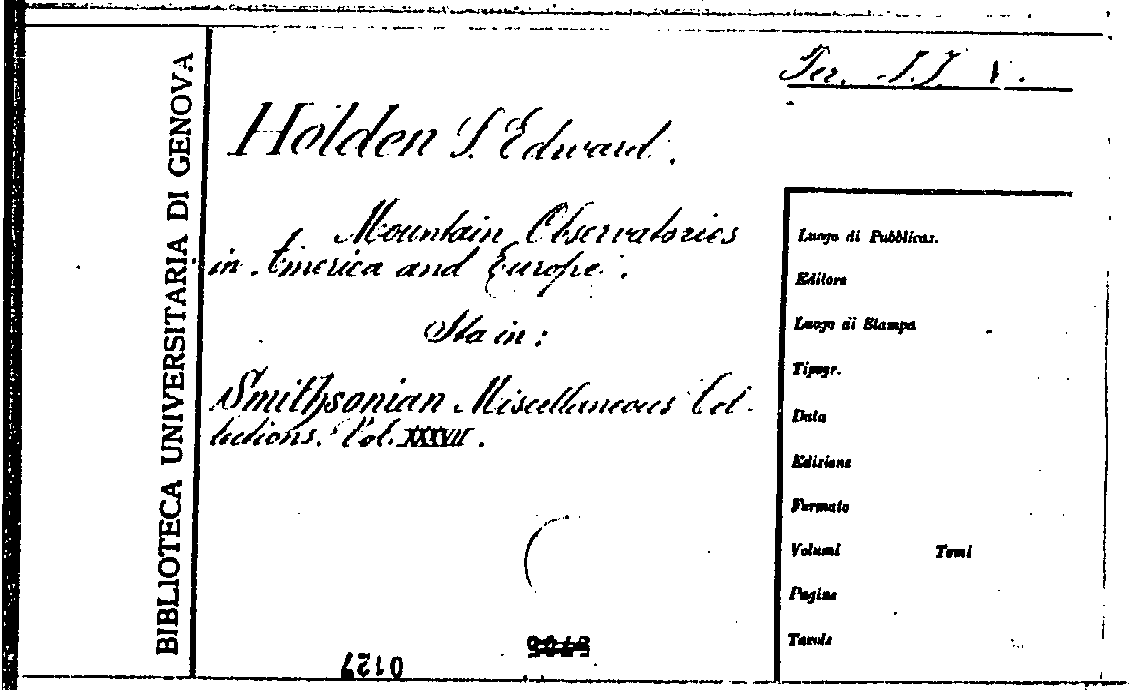 BIBLIOTECA UNIVERSITARIA DI GENOVA
Per. I.I
Holden S. Edward.
Mountain Observatories
in America and Europe.
Sta in:
Smithsonian Miscellaneous Col-
lections. Vol. XXXVII.
Luogo di Pubblicaz.
Editore
Luogo di Stampa
Tipogr.
Data
Edizione
Formato
Volumi Tomi
Pagine
Tavole
0127